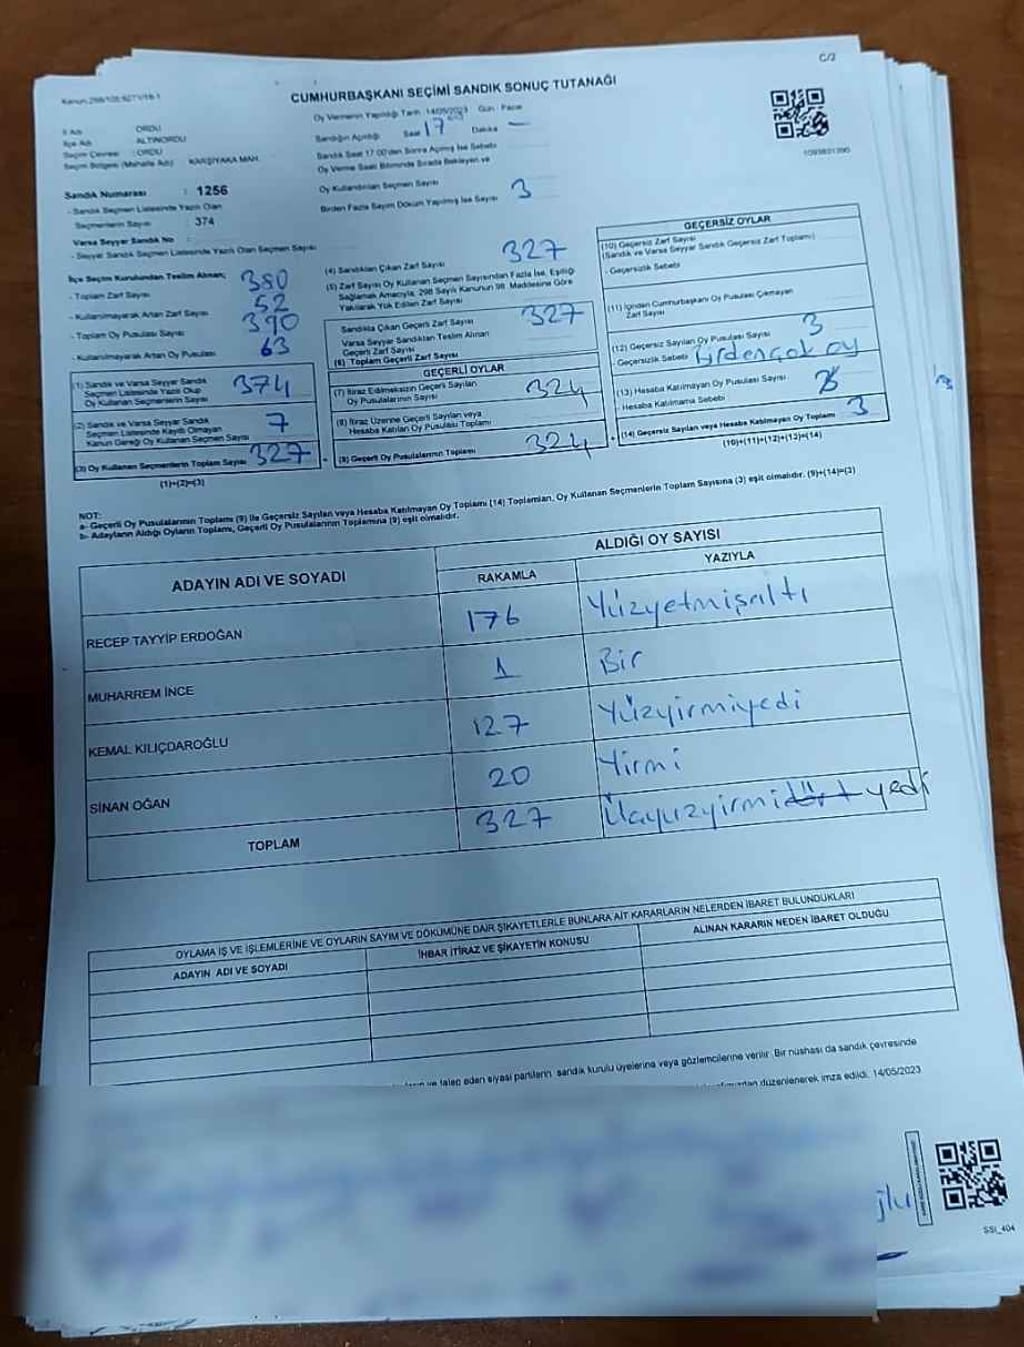 C/2
CUMHURBAŞKANI SEÇİMİ SANDIK SONUÇ TUTANAĞI
Oy Vermenin Yapıldığı Tarih : 14/05/2023 Gün : Pazar
İl Adı ORDU
İlçe Adı ALTINORDU
Seçim Çevresi : ORDU
Seçim Bölgesi (Mahalle Adı) KARŞIYAKA MAH.
Sandığın Açıldığı Saat 17 Dakika —
Sandık Saat 17:00'den Sonra Açılmış İse Sebebi
Oy Verme Saati Bitiminde Sırada Bekleyen ve
Oy Kullandırılan Seçmen Sayısı 3
Birden Fazla Sayım Döküm Yapılmış İse Sayısı
Sandık Numarası : 1256
- Sandık Seçmen Listesinde Yazılı Olan
Seçmenlerin Sayısı : 374
Varsa Seyyar Sandık No :
- Seyyar Sandık Seçmen Listesinde Yazılı Olan Seçmen Sayısı
İlçe Seçim Kurulundan Teslim Alınan;
- Toplam Zarf Sayısı 380
- Kullanılmayarak Artan Zarf Sayısı 52
- Toplam Oy Pusulası Sayısı 390
- Kullanılmayarak Artan Oy Pusulası 63
(1) Sandık ve Varsa Seyyar Sandık
Seçmen Listesinde Yazılı Olup
Oy Kullanan Seçmenlerin Sayısı 374
(2) Sandık ve Varsa Seyyar Sandık
Seçmen Listesinde Kayıtlı Olmayan
Kanun Gereği Oy Kullanan Seçmen Sayısı 7
(3) Oy Kullanan Seçmenlerin Toplam Sayısı 327
(1)+(2)=(3)
(4) Sandıktan Çıkan Zarf Sayısı 327
(5) Zarf Sayısı Oy Kullanan Seçmen Sayısından Fazla İse, Eşitliği
Sağlamak Amacıyla, 298 Sayılı Kanunun 98. Maddesine Göre
Yakılarak Yok Edilen Zarf Sayısı
Sandıkta Çıkan Geçerli Zarf Sayısı 327
Varsa Seyyar Sandıktan Teslim Alınan
Geçerli Zarf Sayısı
(6) Toplam Geçerli Zarf Sayısı
GEÇERLİ OYLAR
(7) İtiraz Edilmeksizin Geçerli Sayılan
Oy Pusulalarının Sayısı 324
(8) İtiraz Üzerine Geçerli Sayılan veya
Hesaba Katılan Oy Pusulası Toplamı
(9) Geçerli Oy Pusulalarının Toplamı 324
GEÇERSİZ OYLAR
(10) Geçersiz Zarf Sayısı
(Sandık ve Varsa Seyyar Sandık Geçersiz Zarf Toplamı)
- Geçersizlik Sebebi
(11) İçinden Cumhurbaşkanı Oy Pusulası Çıkmayan
Zarf Sayısı
(12) Geçersiz Sayılan Oy Pusulası Sayısı 3
Geçersizlik Sebebi Birden çok oy
(13) Hesaba Katılmayan Oy Pusulası Sayısı
- Hesaba Katılmama Sebebi
(14) Geçersiz Sayılan veya Hesaba Katılmayan Oy Toplamı 3
(10)+(11)+(12)+(13)=(14)
NOT:
a- Geçerli Oy Pusulalarının Toplamı (9) ile Geçersiz Sayılan veya Hesaba Katılmayan Oy Toplamı (14) Toplamları, Oy Kullanan Seçmenlerin Toplam Sayısına (3) eşit olmalıdır. (9)+(14)=(3)
b- Adayların Aldığı Oyların Toplamı, Geçerli Oy Pusulalarının Toplamına (9) eşit olmalıdır.
ADAYIN ADI VE SOYADI
ALDIĞI OY SAYISI
RAKAMLA YAZIYLA
RECEP TAYYİP ERDOĞAN 176 Yüzyetmişaltı
MUHARREM İNCE 1 Bir
KEMAL KILIÇDAROĞLU 127 Yüzyirmiyedi
SİNAN OĞAN 20 Yirmi
TOPLAM 327 Üçyuzyirmidört yedi
OYLAMA İŞ VE İŞLEMLERİNE VE OYLARIN SAYIM VE DÖKÜMÜNE DAİR ŞİKAYETLERLE BUNLARA AİT KARARLARIN NELERDEN İBARET BULUNDUKLARI
ADAYIN ADI VE SOYADI İHBAR İTİRAZ VE ŞİKAYETİN KONUSU ALINAN KARARIN NEDEN İBARET OLDUĞU
ve talep eden siyasi partilerin sandık kurulu üyelerine veya gözlemcilerine verilir. Bir nüshası da sandık çevresinde
düzenlenerek imza edildi. 14/05/2023
SSI_404